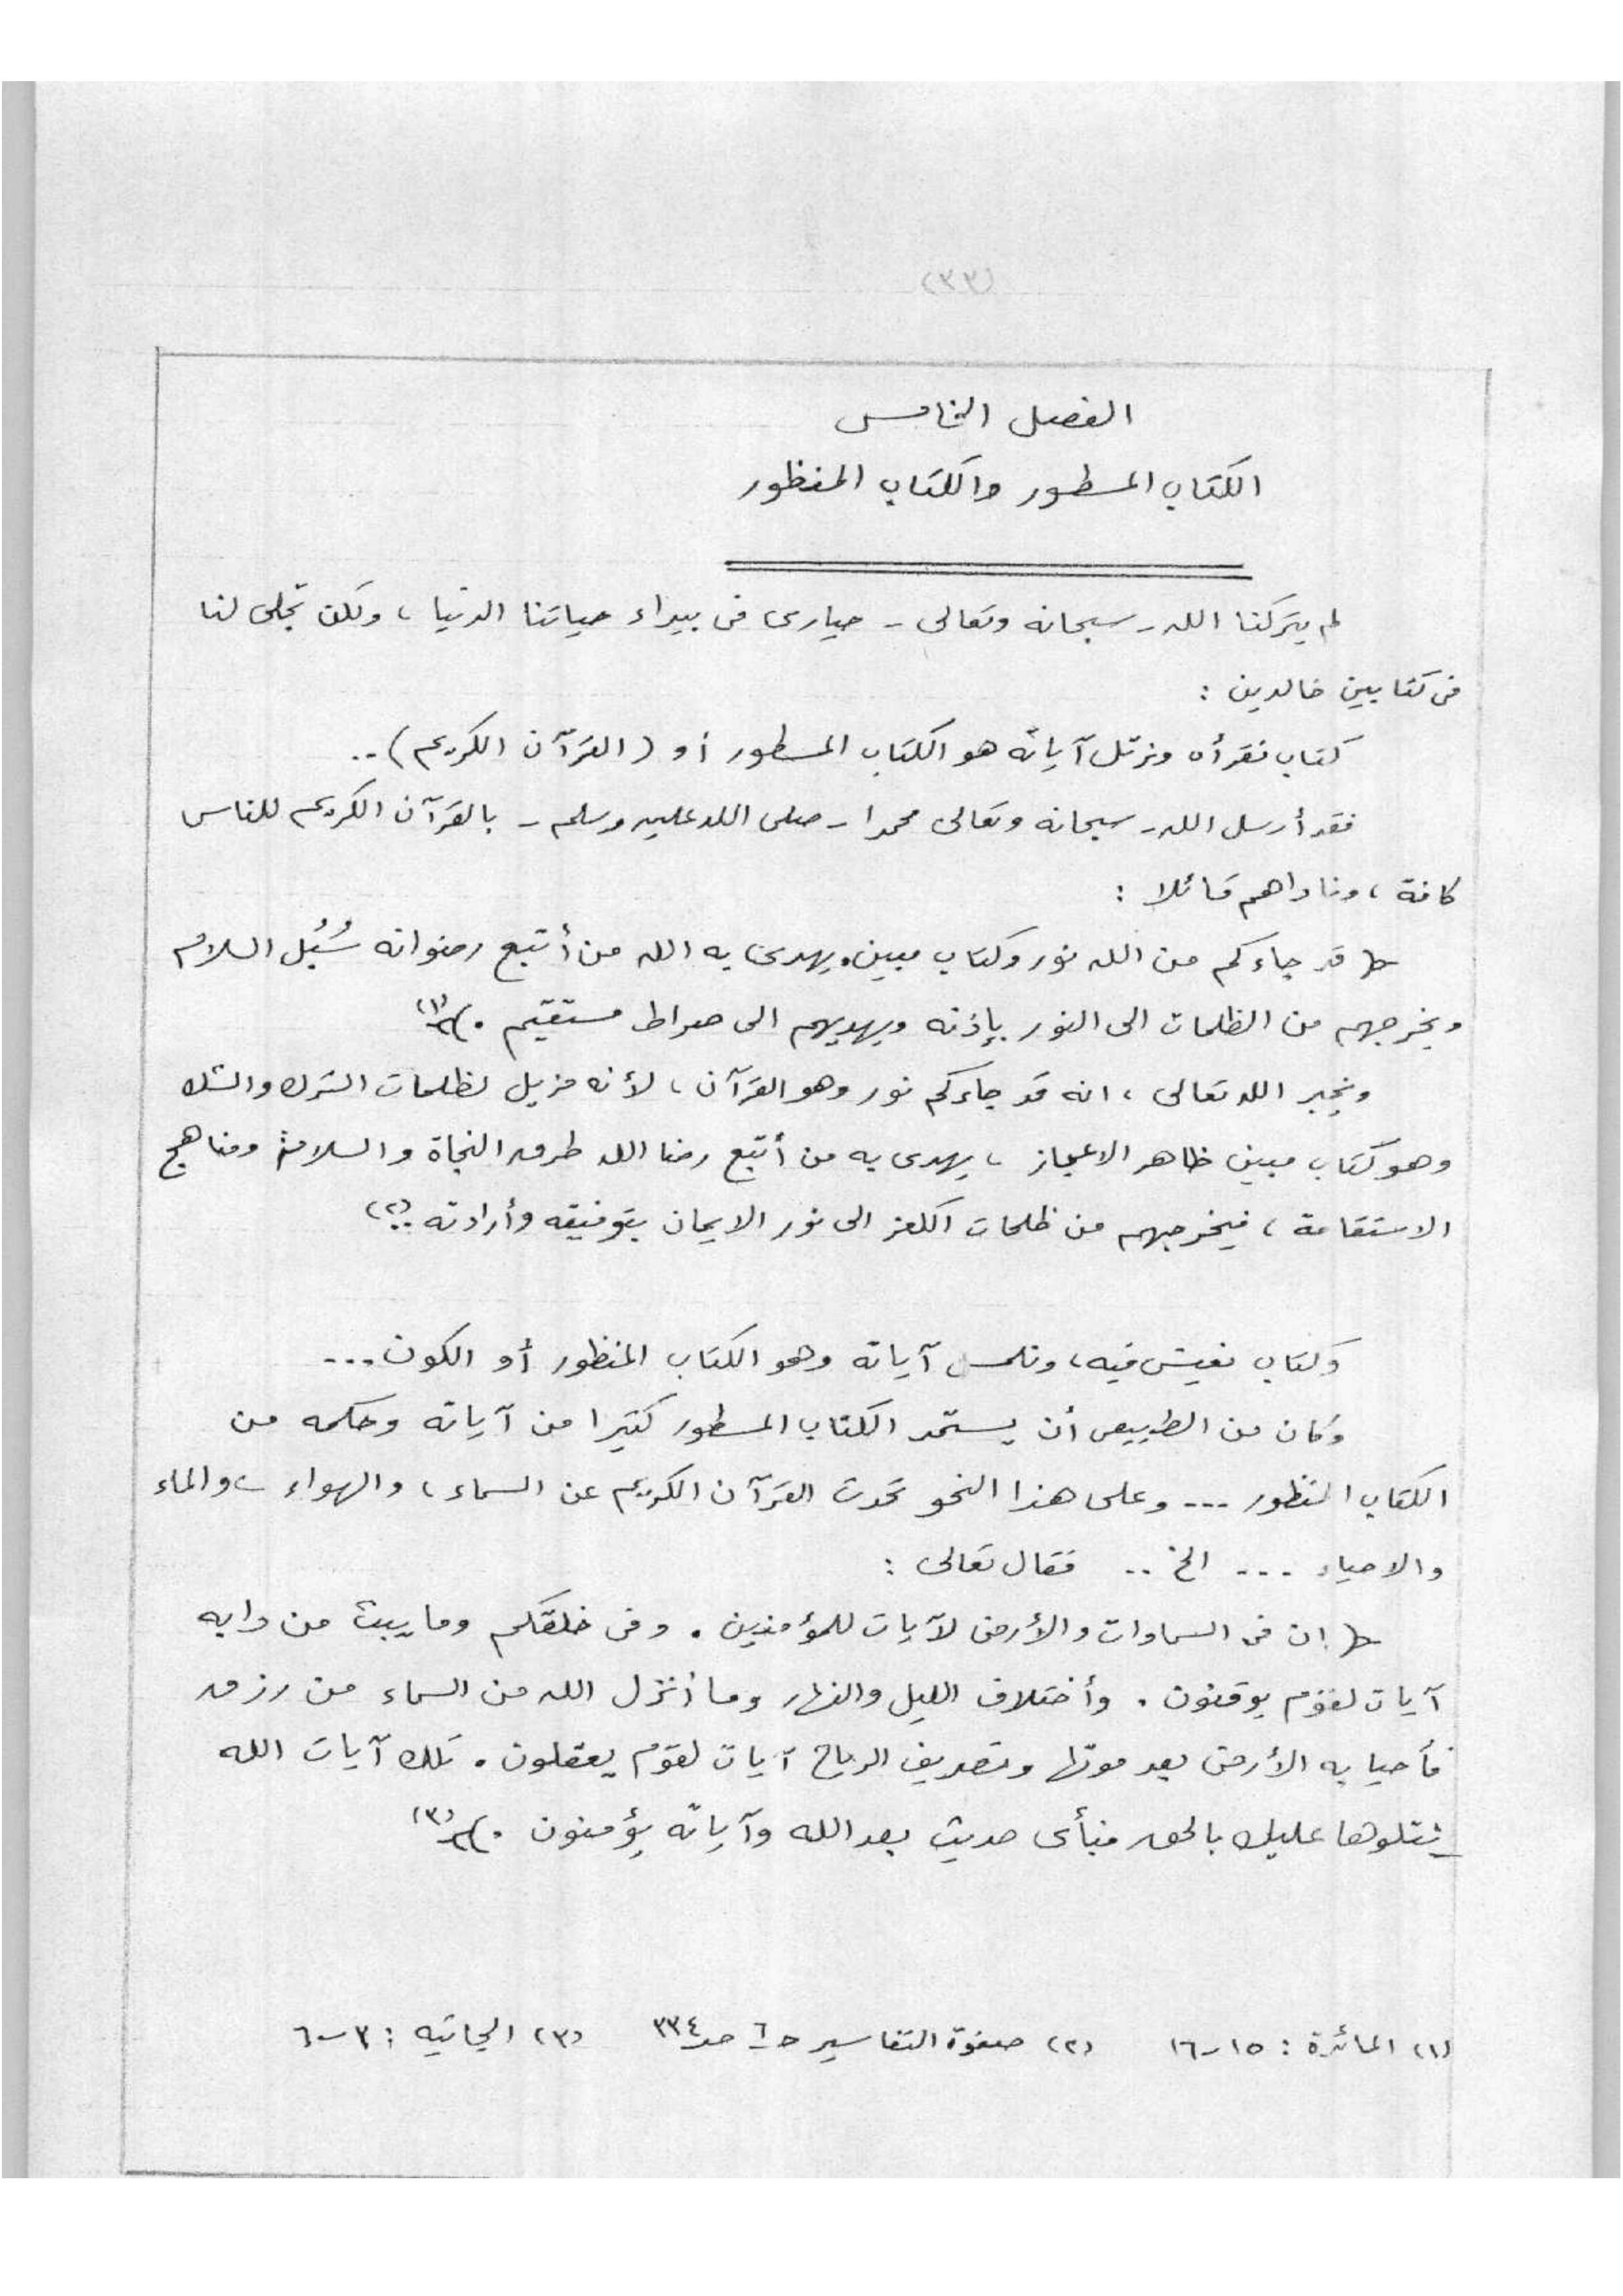 (٣٣)
الفصل الخامس
الكتاب المسطور والكتاب المنظور
لم يتركنا الله - سبحانه وتعالى - حيارى فى بيداء حياتنا الدنيا ، ولكن تجلى لنا
فى كتابين خالدين :
كتاب نقرأه ونرتل آياته هو الكتاب المسطور أو (القرآن الكريم) ..
فقد أرسل الله - سبحانه وتعالى محمدا - صلى الله عليه وسلم - بالقرآن الكريم للناس
كافة ، وناداهم قائلا :
﴿ قد جاءكم من الله نور وكتاب مبين . يهدى به الله من أتبع رضوانه سُبُل السلام
ويخرجهم من الظلمات الى النور بإذنه ويهديهم الى صراط مستقيم . ﴾ (١)
ويخبر الله تعالى ، انه قد جاءكم نور وهو القرآن ، لأنه مزيل لظلمات الشرك والشك
وهو كتاب مبين ظاهر الاعجاز ، يهدى به من أتبع رضا الله طرق النجاة والسلامة ومناهج
الاستقامة ، فيخرجهم من ظلمات الكفر الى نور الايمان بتوفيقه وأرادته .. (٢)
وكتاب نعيش فيه ، ونلمس آياته وهو الكتاب المنظور أو الكون ...
وكان من الطبيعى أن يستمد الكتاب المسطور كثيرا من آياته وحكمه من
الكتاب المنظور ... وعلى هذا النحو تحدث القرآن الكريم عن السماء ، والهواء ، والماء
والاحياء ... الخ .. فقال تعالى :
﴿ ان فى السماوات والأرض لآيات للمؤمنين . وفى خلقكم وما يبث من دابه
آيات لقوم يوقنون . وأختلاف الليل والنهار وما أنزل الله من السماء من رزق
فأحيا به الأرض بعد موتها وتصريف الرياح آيات لقوم يعقلون . تلك آيات الله
نتلوها عليك بالحق فبأى حديث بعد الله وآياته يؤمنون . ﴾ (٣)
(١) المائدة : ١٥ - ١٦ (٢) صفوة التفاسير حـ ٦ صـ ٣٣٤ (٣) الجاثيه : ٣ - ٦